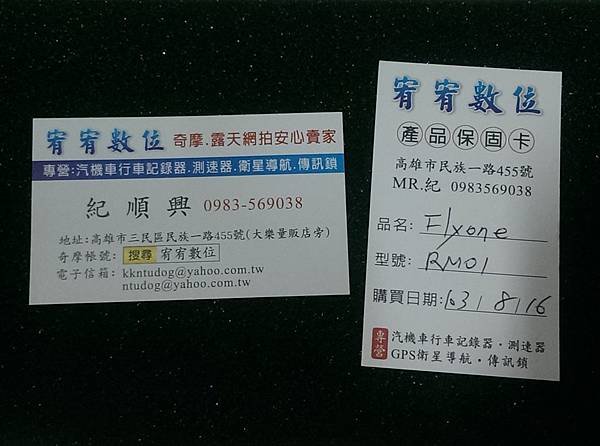 宥宥數位 奇摩.露天網拍安心賣家
專營:汽機車行車記錄器.測速器.衛星導航.傳訊鎖
紀順興 0983-569038
地址:高雄市三民區民族一路455號(大樂量販店旁)
奇摩帳號: 搜尋 宥宥數位
電子信箱: kkntudog@yahoo.com.tw
ntudog@yahoo.com.tw
宥宥數位
產品保固卡
高雄市民族一路455號
MR.紀 0983569038
品名: Flyone
型號: RM01
購買日期: 103/8/16
專營 汽機車行車記錄器·測速器
GPS衛星導航·傳訊鎖